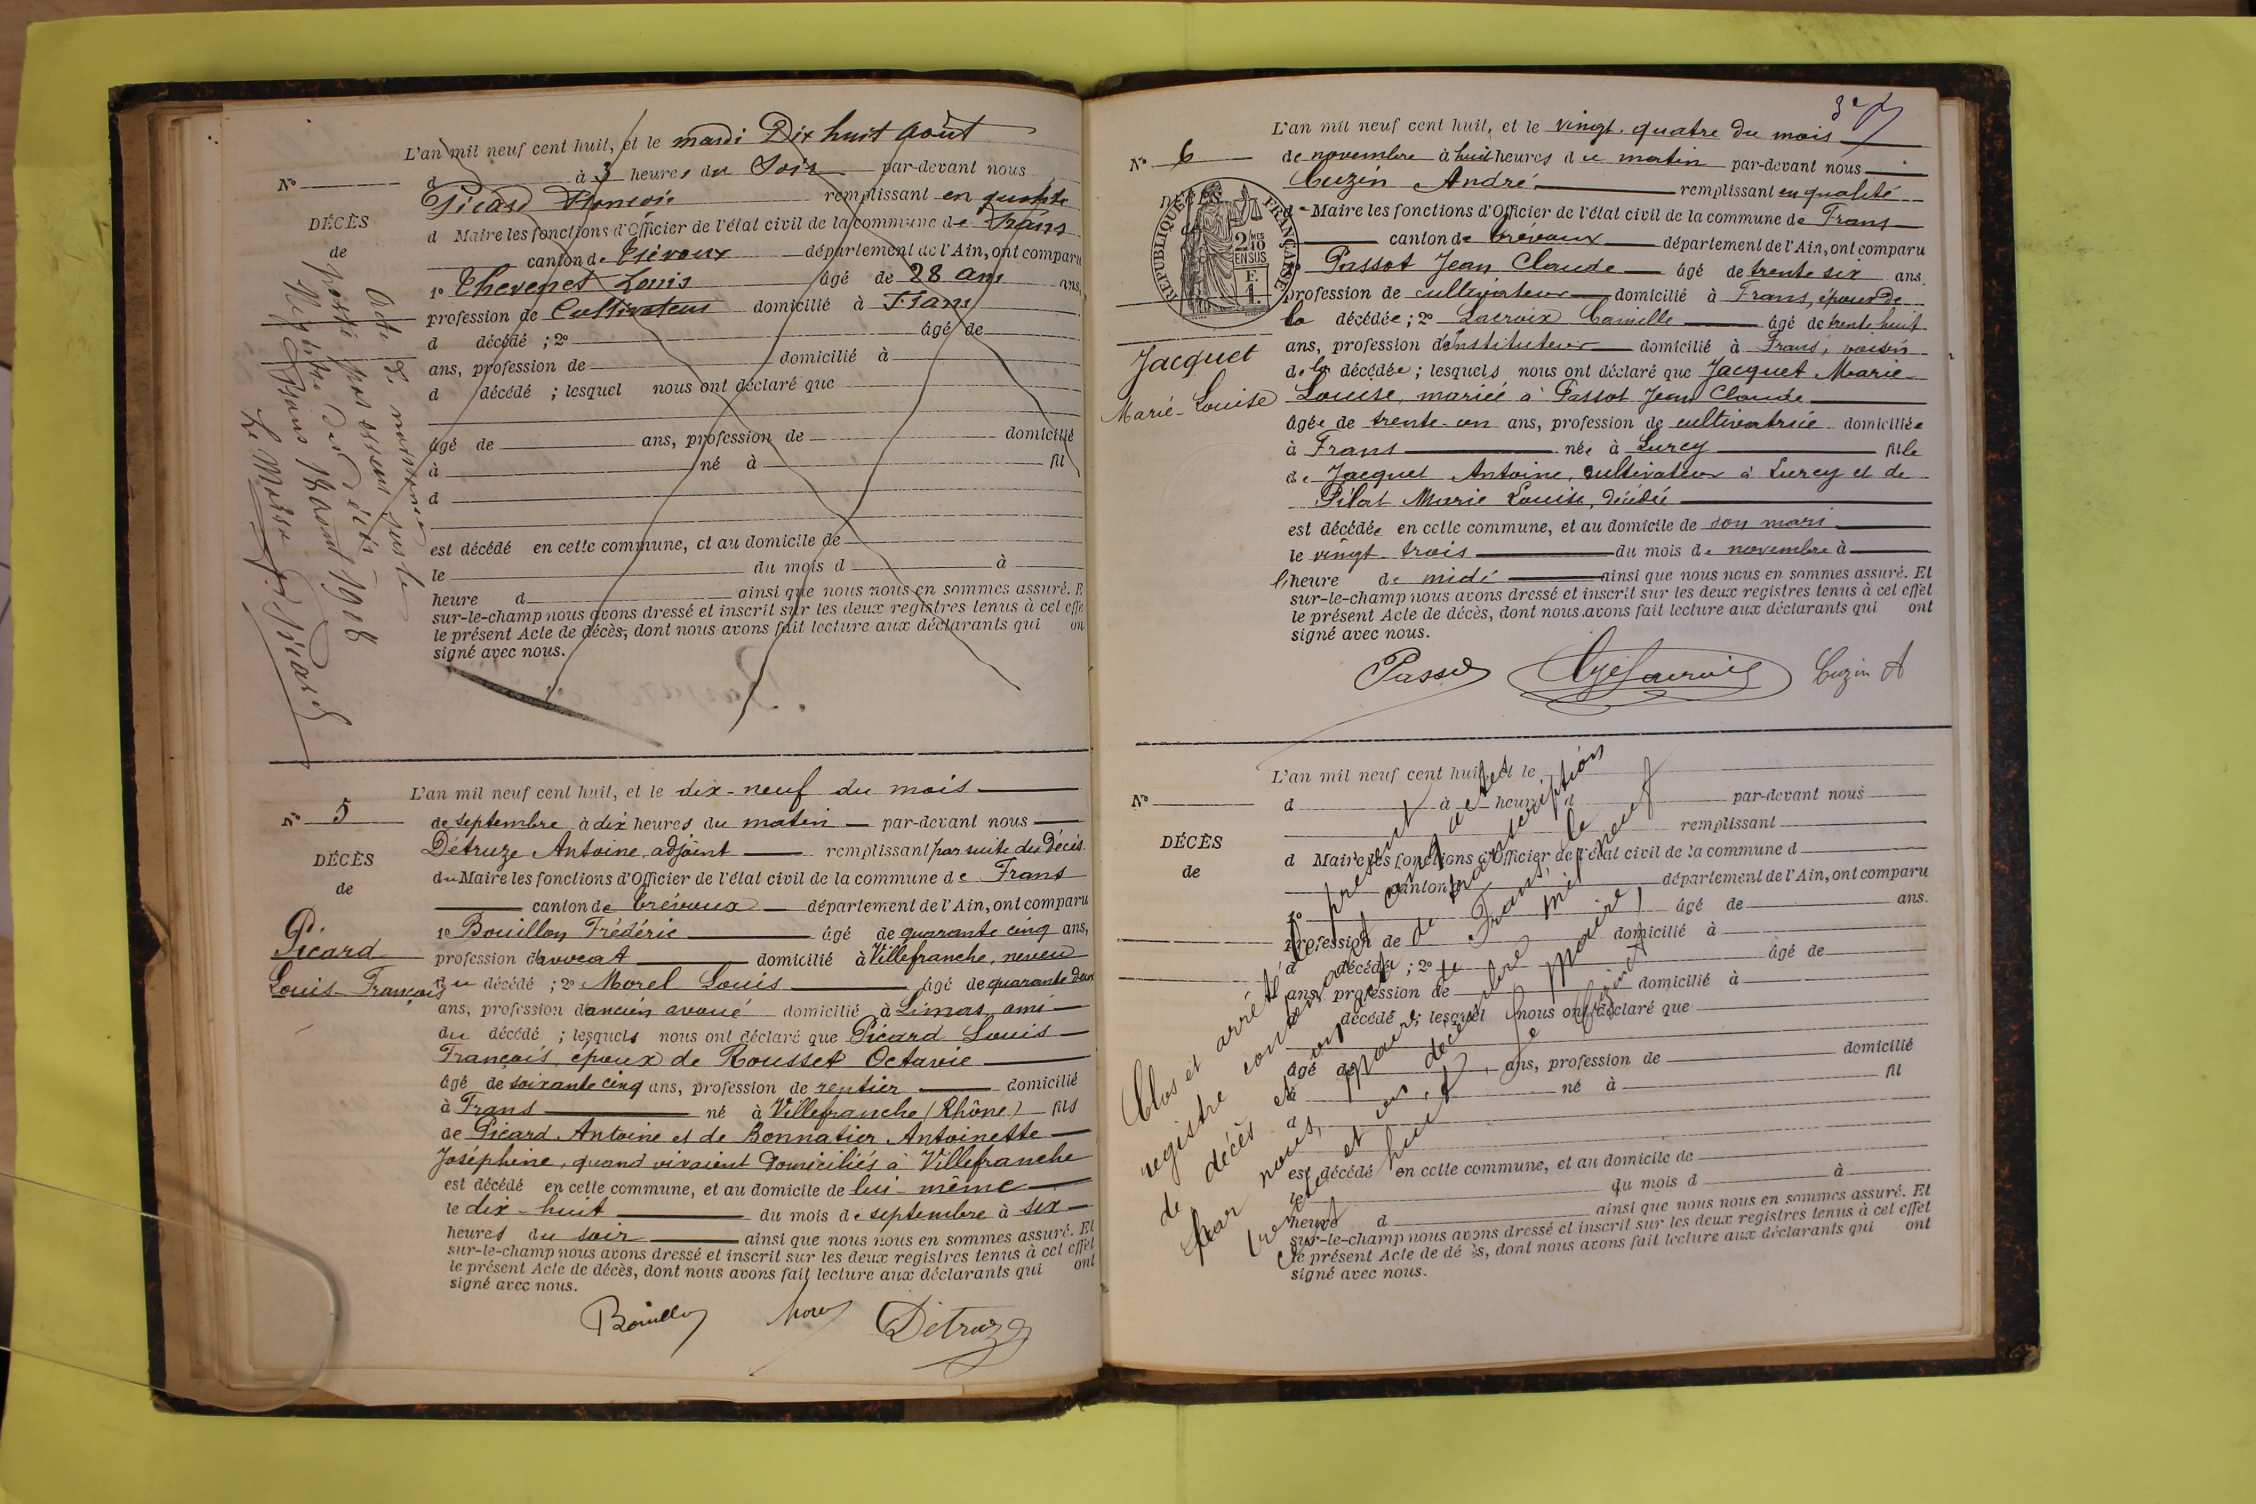 L'an mil neuf cent huit, et le mardi Dix huit Août
d à 3 heures du Soir par-devant nous
Nº
Picard François remplissant en qualité
DÉCÈS
d Maire les fonctions d'Officier de l'état civil de la commune de Frans
de
canton de Trévoux département de l'Ain, ont comparu
1º Thevenet Louis âgé de 28 ans ans,
profession de Cultivateur domicilié à Frans
d décédé ; 2º âgé de
ans, profession de domicilié à
d décédé ; lesquel nous ont déclaré que
âgé de ans, profession de domicilié
à né à fil
d
est décédé en cette commune, et au domicile de
le du mois d à
heure d ainsi que nous nous en sommes assuré. E
sur-le-champ nous avons dressé et inscrit sur les deux registres tenus à cet effe
le présent Acte de décès, dont nous avons fait lecture aux déclarants qui on
signé avec nous.
Acte de naissance
porté par erreur sur le
Registre des décès
Frans 18 août 1908
Le Maire
F. Picard
L'an mil neuf cent huit, et le dix-neuf du mois
Nº 5
de septembre à dix heures du matin par-devant nous
Détruze Antoine, adjoint remplissant par suite du décès
DÉCÈS
du Maire les fonctions d'Officier de l'état civil de la commune de Frans
de
canton de Trévoux département de l'Ain, ont comparu
1º Bouillon Frédéric âgé de quarante cinq ans,
Picard
profession d'avocat domicilié à Villefranche, neveu
Louis-François
du décédé ; 2º Morel Louis âgé de quarante deux
ans, profession d'ancien avoué domicilié à Limas, ami
du décédé ; lesquels nous ont déclaré que Picard Louis
François, époux de Rousset Octavie
âgé de soixante cinq ans, profession de rentier domicilié
à Frans né à Villefranche (Rhône) fils
de Picard Antoine et de Bonnatier Antoinette
Joséphine, quand vivaient domiciliés à Villefranche
est décédé en cette commune, et au domicile de lui-même
le dix-huit du mois de septembre à six
heures du soir ainsi que nous nous en sommes assuré. Et
sur-le-champ nous avons dressé et inscrit sur les deux registres tenus à cet effet
le présent Acte de décès, dont nous avons fait lecture aux déclarants qui ont
signé avec nous.
Bouillon Morel Détruze
L'an mil neuf cent huit, et le vingt-quatre du mois
Nº 6
de novembre à huit heures du matin par-devant nous
Cuzin André remplissant en qualité
DÉCÈS
RÉPUBLIQUE FRANÇAISE
2/10 EN SUS
de Maire les fonctions d'Officier de l'état civil de la commune de Frans
canton de Trévoux département de l'Ain, ont comparu
1º Passot Jean Claude âgé de trente six ans.
profession de cultivateur domicilié à Frans, époux de
la décédée ; 2º Lacroix Camille âgé de trente huit
Jacquet
Marie-Louise
ans, profession d'instituteur domicilié à Frans, voisin
de la décédée ; lesquels nous ont déclaré que Jacquet Marie
Louise, mariée à Passot Jean Claude
âgée de trente-un ans, profession de cultivatrice domiciliée
à Frans née à Lurcy fille
de Jacquet Antoine, cultivateur à Lurcy et de
Pilat Marie Louise, décédée
est décédée en cette commune, et au domicile de son mari
le vingt-trois du mois de novembre à
l'heure de midi ainsi que nous nous en sommes assuré. Et
sur-le-champ nous avons dressé et inscrit sur les deux registres tenus à cet effet
le présent Acte de décès, dont nous avons fait lecture aux déclarants qui ont
signé avec nous.
Passot Lacroix Cuzin A
L'an mil neuf cent huit, et le
Nº
d à heure d par-devant nous
remplissant
DÉCÈS
d Maire les fonctions d'Officier de l'état civil de la commune d
de
canton d département de l'Ain, ont comparu
1º âgé de ans.
profession de domicilié à
d décédé ; 2º âgé de
ans, profession de domicilié à
d décédé ; lesquel nous ont déclaré que
âgé de ans, profession de domicilié
à né à fil
d
est décédé en cette commune, et au domicile de
le du mois d à
heure d ainsi que nous nous en sommes assuré. Et
sur-le-champ nous avons dressé et inscrit sur les deux registres tenus à cet effet
le présent Acte de décès, dont nous avons fait lecture aux déclarants qui ont
signé avec nous.
Clos et arrêté le présent
registre contenant cinq actes
de décès et un acte de transcription
par nous, maire de Frans, le
trente et un décembre mil neuf
cent huit. Le maire,
Cuzin A